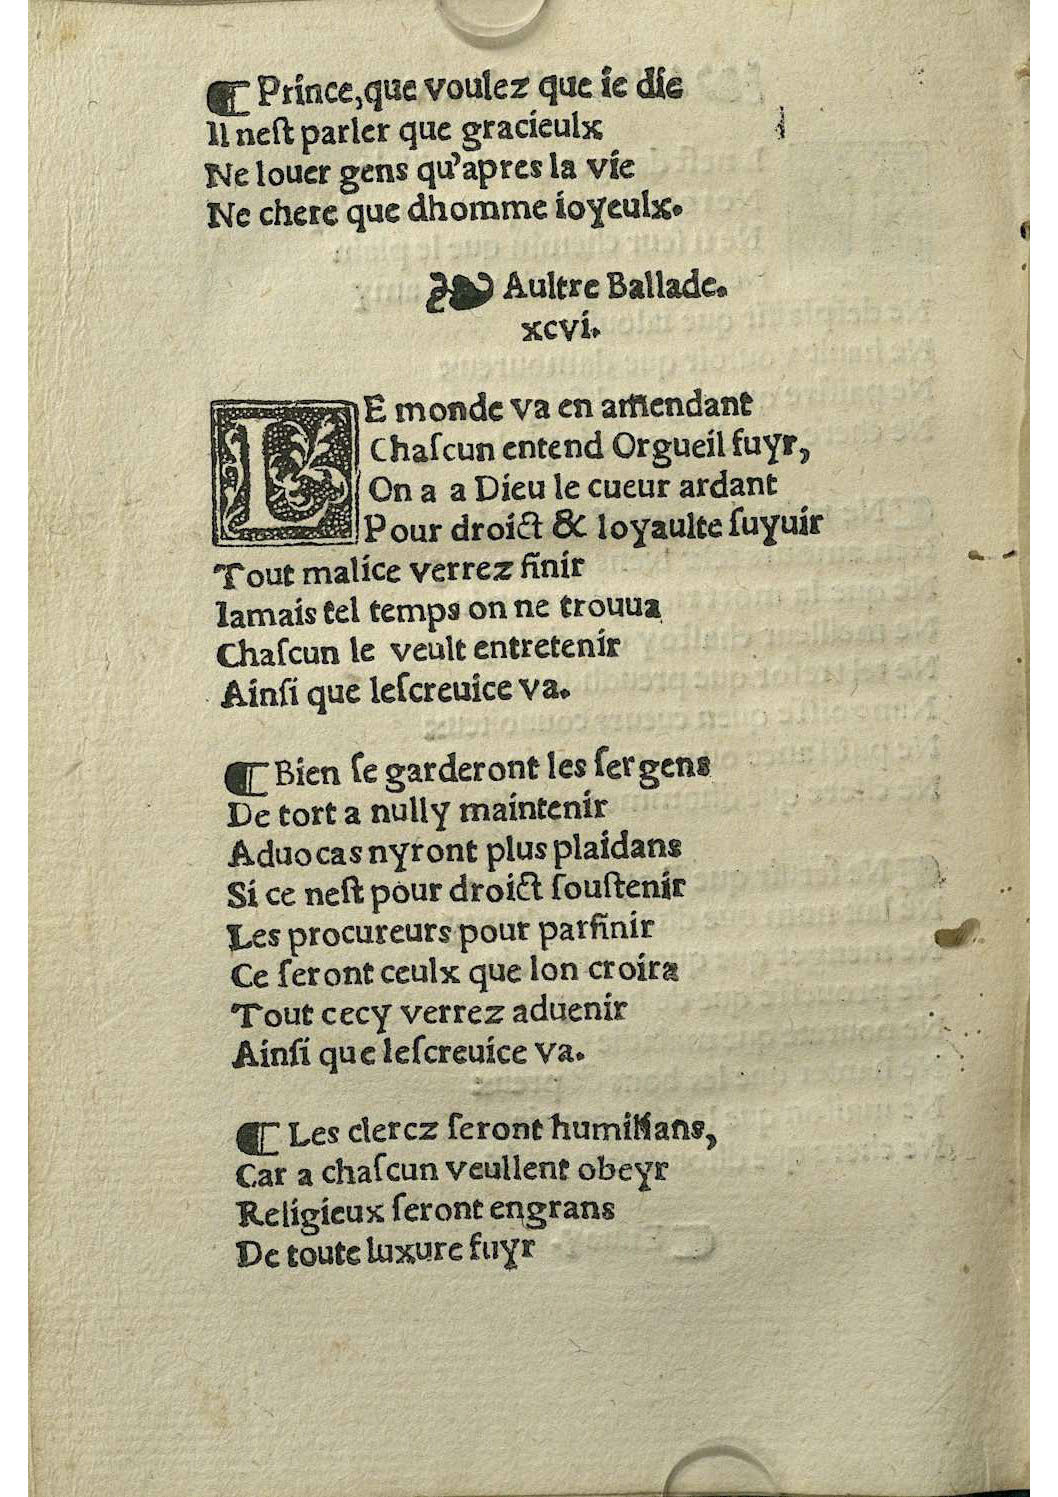 ¶ Prince, que voulez que ie die
Il nest parler que gracieulx
Ne louer gens qu'apres la vie
Ne chere que dhomme ioyeulx.
❧ Aultre Ballade.
xcvi.
LE monde va en amendant
Chaſcun entend Orgueil fuyr,
On a a Dieu le cueur ardant
Pour droict & loyaulte ſuyuir
Tout malice verrez finir
Iamais tel temps on ne trouua
Chaſcun le veult entretenir
Ainſi que leſcreuice va.
¶ Bien ſe garderont les ſergens
De tort a nully maintenir
Aduocas nyront plus plaidans
Si ce neſt pour droict ſouſtenir
Les procureurs pour parfinir
Ce ſeront ceulx que lon croira
Tout cecy verrez aduenir
Ainſi que leſcreuice va.
¶ Les clercz ſeront humilians,
Car a chaſcun veullent obeyr
Religieux ſeront engrans
De toute luxure fuyr